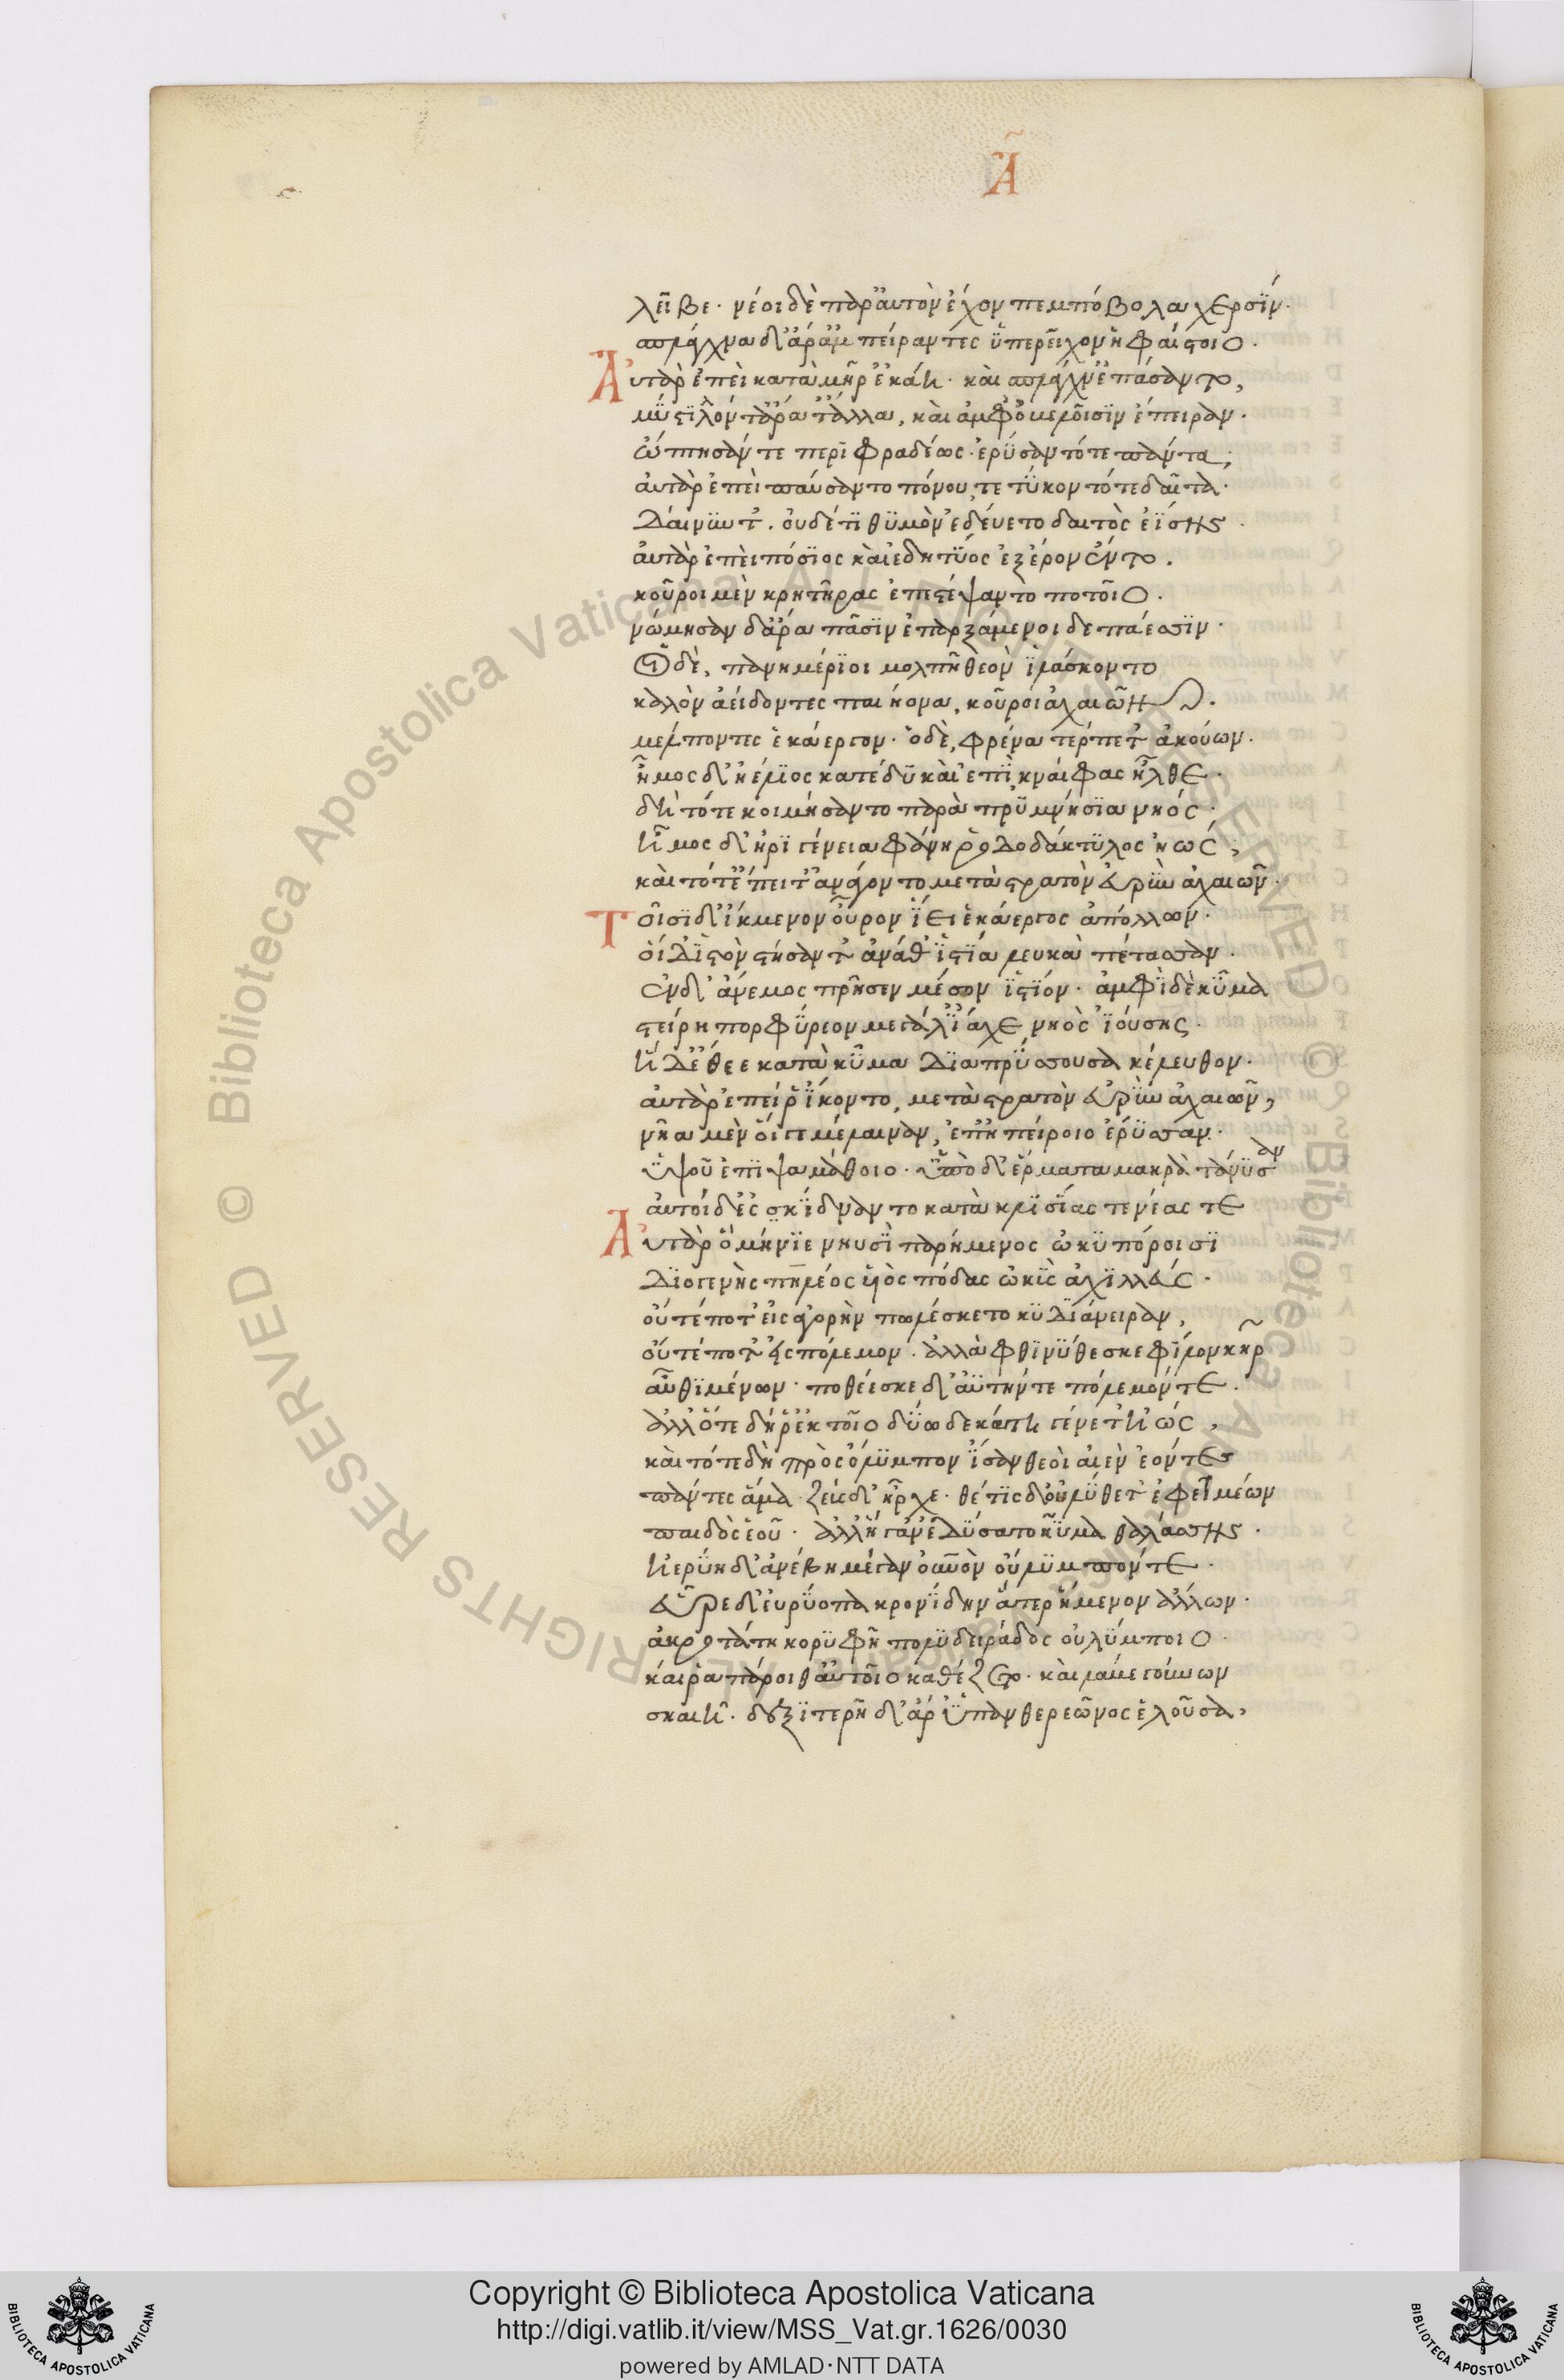 Α
λεῖβε· νέοι δὲ παρ' αὐτὸν ἔχον πεμπόβολα χερσίν.
σπλάγχνα δ' ἄρ' ἀμπείραντες ὑπείρεχον ἡφαίστοιο.
Αὐτὰρ ἐπεὶ κατὰ μῆρ' ἐκάη· καὶ σπλάγχν' ἐπάσαντο,
μίστυλλόν τ' ἄρα τἄλλα, καὶ ἀμφ' ὀβελοῖσιν ἔπειραν.
ὤπτησάν τε περιφραδέως· ἐρύσαντό τε πάντα,
αὐτὰρ ἐπεὶ παύσαντο πόνου, τετύκοντό τε δαῖτα.
δαίνυντ'. οὐδέ τι θυμὸν ἐδεύετο δαιτὸς ἐΐσης.
αὐτὰρ ἐπεὶ πόσιος καὶ ἐδητύος ἐξ ἔρον ἕντο.
κοῦροι μὲν κρητῆρας ἐπεστέψαντο ποτοῖο.
νώμησαν δ' ἄρα πᾶσιν ἐπαρξάμενοι δεπάεσσιν.
οἱ δὲ, πανημέριοι μολπῇ θεὸν ἱλάσκοντο
καλὸν ἀείδοντες παιήονα, κοῦροι ἀχαιῶν.
μέλποντες ἑκάεργον· ὁ δὲ, φρένα τέρπετ' ἀκούων.
ἦμος δ' ἠέλιος κατέδυ καὶ ἐπὶ κνέφας ἦλθε.
δὴ τότε κοιμήσαντο παρὰ πρυμνήσια νηός.
ἦμος δ' ἠριγένεια φάνη ῥοδοδάκτυλος ἠώς,
καὶ τότ' ἔπειτ' ἀνάγοντο μετὰ στρατὸν εὐρὺν ἀχαιῶν.
Τοῖσι δ' ἴκμενον οὖρον ἵει ἑκάεργος ἀπόλλων.
οἱ δ' ἱστὸν στήσαντ' ἀνά θ' ἱστία λευκὰ πέτασσαν.
ἐν δ' ἄνεμος πρῆσεν μέσον ἱστίον· ἀμφὶ δὲ κῦμα
στείρῃ πορφύρεον μεγάλ' ἴαχε νηὸς ἰούσης.
ἡ δ' ἔθεε κατὰ κῦμα διαπρύσσουσα κέλευθον.
αὐτὰρ ἐπεί ῥ' ἵκοντο, μετὰ στρατὸν εὐρὺν ἀχαιῶν,
νῆα μὲν οἵ γε μέλαιναν, ἐπ' ἠπείροιο ἔρυσσαν.
ὑψοῦ ἐπὶ ψαμάθοιο· ὑπὸ δ' ἕρματα μακρὰ τάνυσσαν
αὐτοὶ δ' ἐσκίδναντο κατὰ κλισίας τε νέας τε
Αὐτὰρ ὁ μήνιε νηυσὶ παρήμενος ὠκυπόροισι
διογενὴς πηλέος υἱὸς πόδας ὠκὺς ἀχιλλεύς.
οὔτέ ποτ' εἰς ἀγορὴν πωλέσκετο κυδιάνειραν,
οὔτέ ποτ' ἐς πόλεμον. ἀλλὰ φθινύθεσκε φίλον κῆρ
αὖθι μένων· ποθέεσκε δ' ἀϋτήν τε πόλεμόν τε.
ἀλλ' ὅτε δή ῥ' ἐκ τοῖο δυωδεκάτη γένετ' ἠώς,
καὶ τότε δὴ πρὸς ὄλυμπον ἴσαν θεοὶ αἰὲν ἐόντες
πάντες ἅμα· ζεὺς δ' ἦρχε· θέτις δ' οὐ λήθετ' ἐφετμέων
παιδὸς ἑοῦ· ἀλλ' ἥ γ' ἀνεδύσατο κῦμα θαλάσσης.
ἠερίη δ' ἀνέβη μέγαν οὐρανὸν οὔλυμπόν τε.
εὗρε δ' εὐρύοπα κρονίδην ἄτερ ἥμενον ἄλλων.
ἀκροτάτῃ κορυφῇ πολυδειράδος οὐλύμποιο.
καί ῥα πάροιθ' αὐτοῖο καθέζετο· καὶ λάβε γούνων
σκαιῇ· δεξιτερῇ δ' ἄρ' ὑπ' ἀνθερεῶνος ἑλοῦσα,
Copyright © Biblioteca Apostolica Vaticana
http://digi.vatlib.it/view/MSS_Vat.gr.1626/0030
powered by AMLAD·NTT DATA